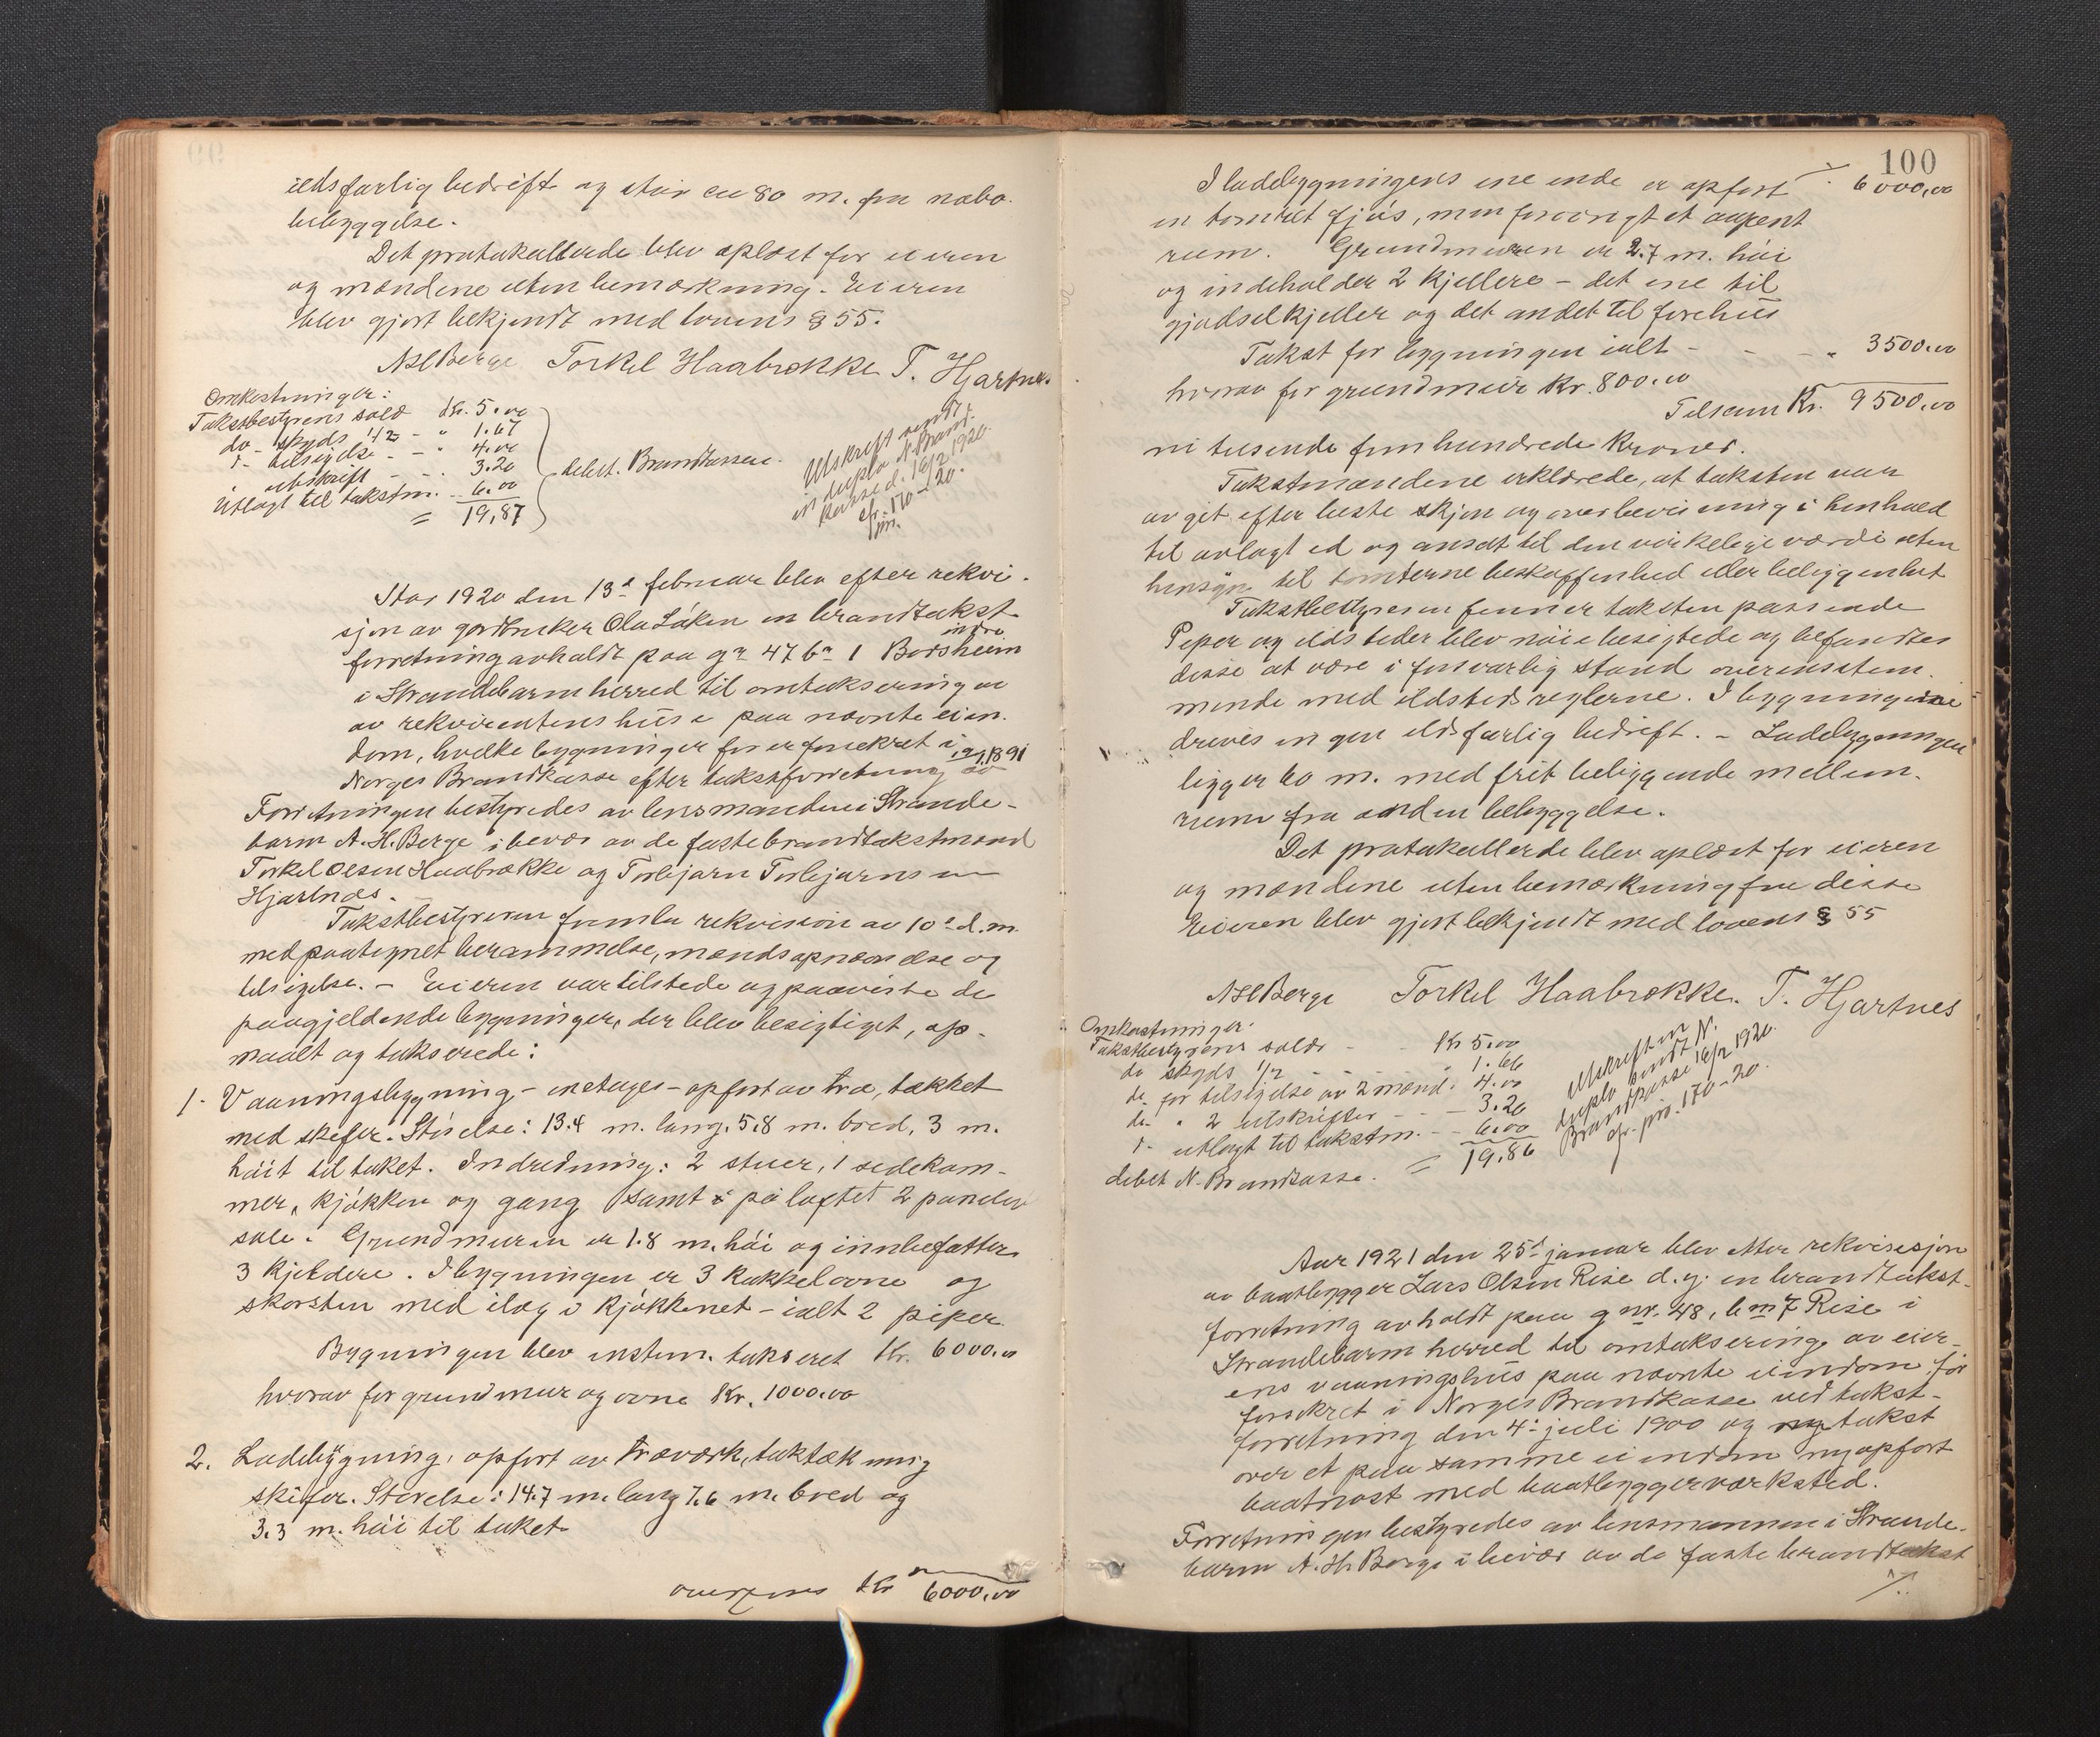 ildsfarlig bedrift og står ca 80 m. fra nabo-
bebyggelse.
Det protokollerede blev oplæst for eieren
og mændene uten bemærkning. Eieren
blev gjort bekjendt med lovens § 55.
A H Berge Torkel Haabrekke T. Hjartnes
Omkostninger:
Takstbestyrerens salær Kr. 5.00
do - skyds 1/2 - " 1.67
d - tilsigelse - - " 4.00
" utskrift - - - 3.20
Utlagt til takstm. - 6.00
= 19,87
debet. Brandkassen.
Utskrift sendt
in duplo N. Brand-
kasse d. 16/2 1920.
cfr. 170-20.
jrn.
Aar 1920 den 13de februar blev efter rekvi-
sjon av gardbruker Ola Løken en brandtakst-
forretning avholdt paa gn 47 bn 1 indre Børsheim
i Strandebarm herred til omtaksering av
av rekvirentens huse paa nævnte eien-
dom, hvilke bygninger før er forsikret i
Norges Brandkasse efter takstforretning av 19/9 1891
Forretningen bestyredes av lensmanden i Strande-
barm A. H. Berge i bevær av de faste brandtakstmænd
Torkel Olsen Haabrekke og Torbjørn Torbjørnsen
Hjartnæs.
Takstbestyreren fremla rekvision av 10de d.m.
med paategnet berammelse, mændsopnævnelse og
tilsigelse. - Eieren var tilstede og paaviste de
paagjeldende bygninger, der blev besigtiget, op-
maalt og takserede:
1. Vaaningsbygning - enetages - opført av træ, tækket
med skifer. Størelse: 13.4 m. lang, 5.8 m. bred, 3 m.
høit til taket. Indredning: 2 stuer, 1 sidekam-
mer, kjøkken og gang samt på loftet 2 panelte
sale. Grundmuren er 1.8 m. høi og innbefatter
3 kjeldere. I bygningen er 3 kakkelovne og
skorsten med ilæg i kjøkkenet - ialt 2 piper.
Bygningen blev enstem. taksert Kr. 6000.00
hvorav for grundmur og ovne Kr. 1000.00
2. Ladebygning, opført av træværk, taktækning
skifer. Størelse: 14.7 m. lang 7.6 m. bred og
3.3 m. høi til taket
overføres Kr 6000.00
100
I ladebygningens ene ende er opført ./. 6000.00
en tømret fjøs, men forøvrigt et aapent
rum. Grundmuren er 2.7 m. høi
og indeholder 2 kjellere - det ene til
gjødselkjeller og det andet til forehus
Takst for bygningen ialt - - - " 3500.00
hvorav for grundmur Kr. 800.00
Tilsam Kr. 9500.00
ni tusende fem hundrede Kroner.
Takstmændene erklærede, at taksten var
avgit efter beste skjøn og overbevisning i henhold
til avlagt ed og ansat til den virkelige værdi uten
hensyn til tomterne beskaffenhed eller beliggenhet
Takstbestyreren finner taksten passende
Peper og ildsteder blev nøie besigtede og befandtes
disse at være i forsvarlig stand overensstem-
mende med ildstedsreglerne. I bygningene
drives ingen ildsfarlig bedrift. - Ladebygningen
ligger 60 m. med frit beliggende mellem-
rum fra anden bebyggelse.
Det protokollerde blev oplæst for eieren
og mændene uten bemærkning fra disse
Eieren blev gjort bekjendt med lovens § 55
A H Berge Torkel Haabrekke. T. Hjartnes
Omkostninger.
Takstbestyrerens salær - - Kr 5.00
do skyds 1/2 - - - " 1.66
do. for tilsigelse av 2 mænd. 4.00
do. " 2 utskrifter - - - 3.20
d - utlagt til takstm. - - 6.00
= 19.86
debet N. Brandkasse.
Utskrift in
duplo sendt N.
Brandkasse 16/2 1920.
cfr. jrn. 170-20.
Aar 1921 den 25de januar blev etter rekvisisjon
av baatbygger Lars Olsen Rise d.y. en brandtakst-
forretning avholdt paa gnr. 48, bnr 7 Rise i
Strandebarm herred til omtaksering av eier-
ens vaaningshus paa nævnte eiendom før
forsikret i Norges Brandkasse ved takst-
forretning den 4de juli 1900 og nytakst
over et paa samme eiendom nyopført
baatnøst med baatbyggerværksted.
Forretningen bestyredes av lensmannen i Strande-
barm A. H. Berge i bevær av de faste brandtakst
./.